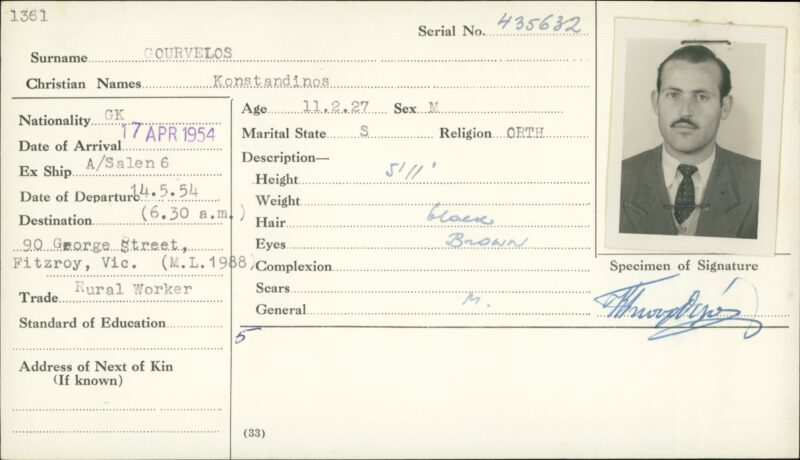 1361
Serial No. 435632
Surname GOURVELOS
Christian Names Konstandinos
Nationality GK
Date of Arrival 17 APR 1954
Ex Ship A/Salen 6
Date of Departure 14.5.54
Destination (6.30 a.m.)
90 George Street,
Fitzroy, Vic. (M.L.1988)
Trade Rural Worker
Standard of Education
Address of Next of Kin
(If known)
Age 11.2.27 Sex M
Marital State S Religion ORTH
Description—
Height 5'11"
Weight
Hair black
Eyes Brown
Complexion
Scars
General M.
5
(33)
Specimen of Signature